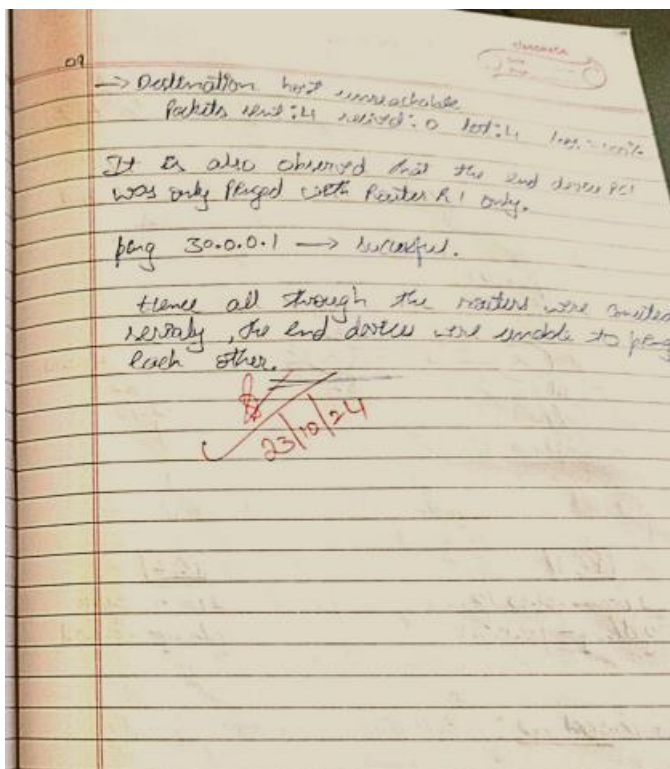 09
classmate
→ Destination host unreachable
Packets sent : 4 recived : 0 lost : 4 loss = 100%
It is also observed that the end device PC1
was only Pinged with Router R1 only.
ping 30.0.0.1 → succesful.
Hence all through the routers were
serialy, the end devices were unable to ping
each other.
23/10/24